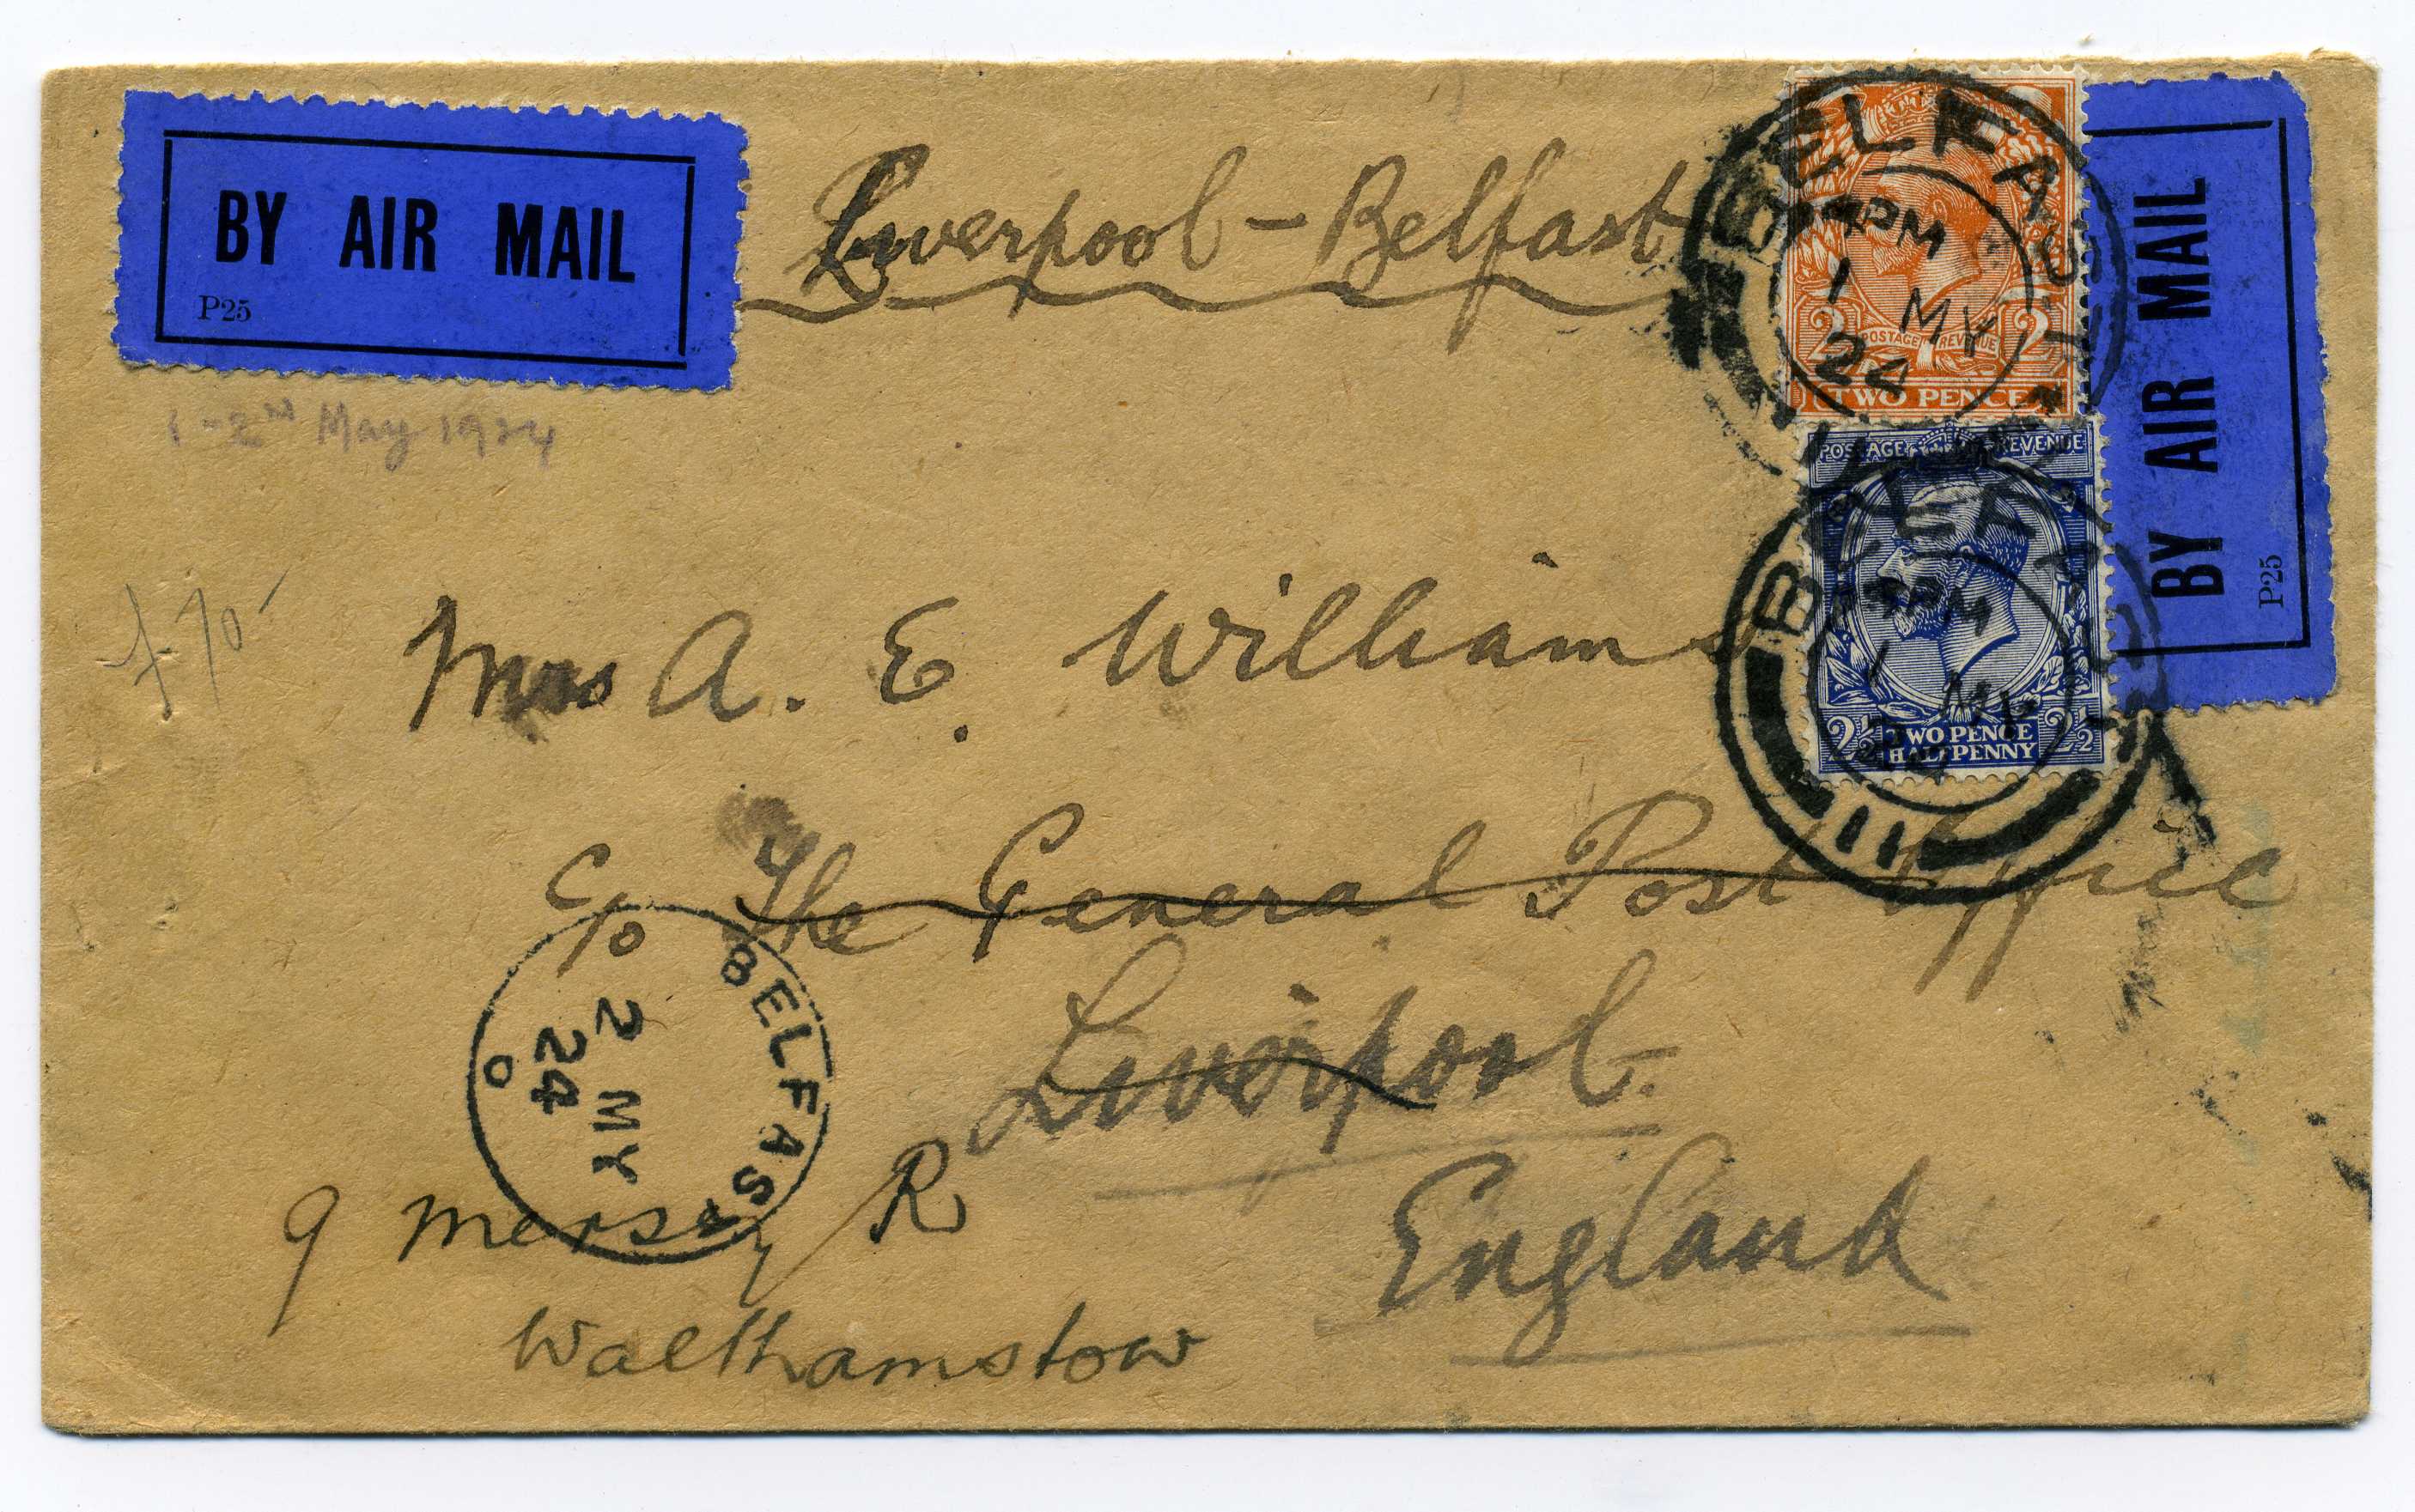 BY AIR MAIL
P25
Liverpool - Belfast
1-2nd May 1924
BELFAST
4PM
1 MY
24
POSTAGE REVENUE
2 2
TWO PENCE
BY AIR MAIL
P25
POSTAGE REVENUE
BELFAST
4PM
1 MY
2½ TWO PENCE HALFPENNY 2½
£70
Mrs A. E. Williams
C/o The General Post Office
Liverpool.
England
BELFAST
2 MY
24
9 Mersey R
Walthamstow